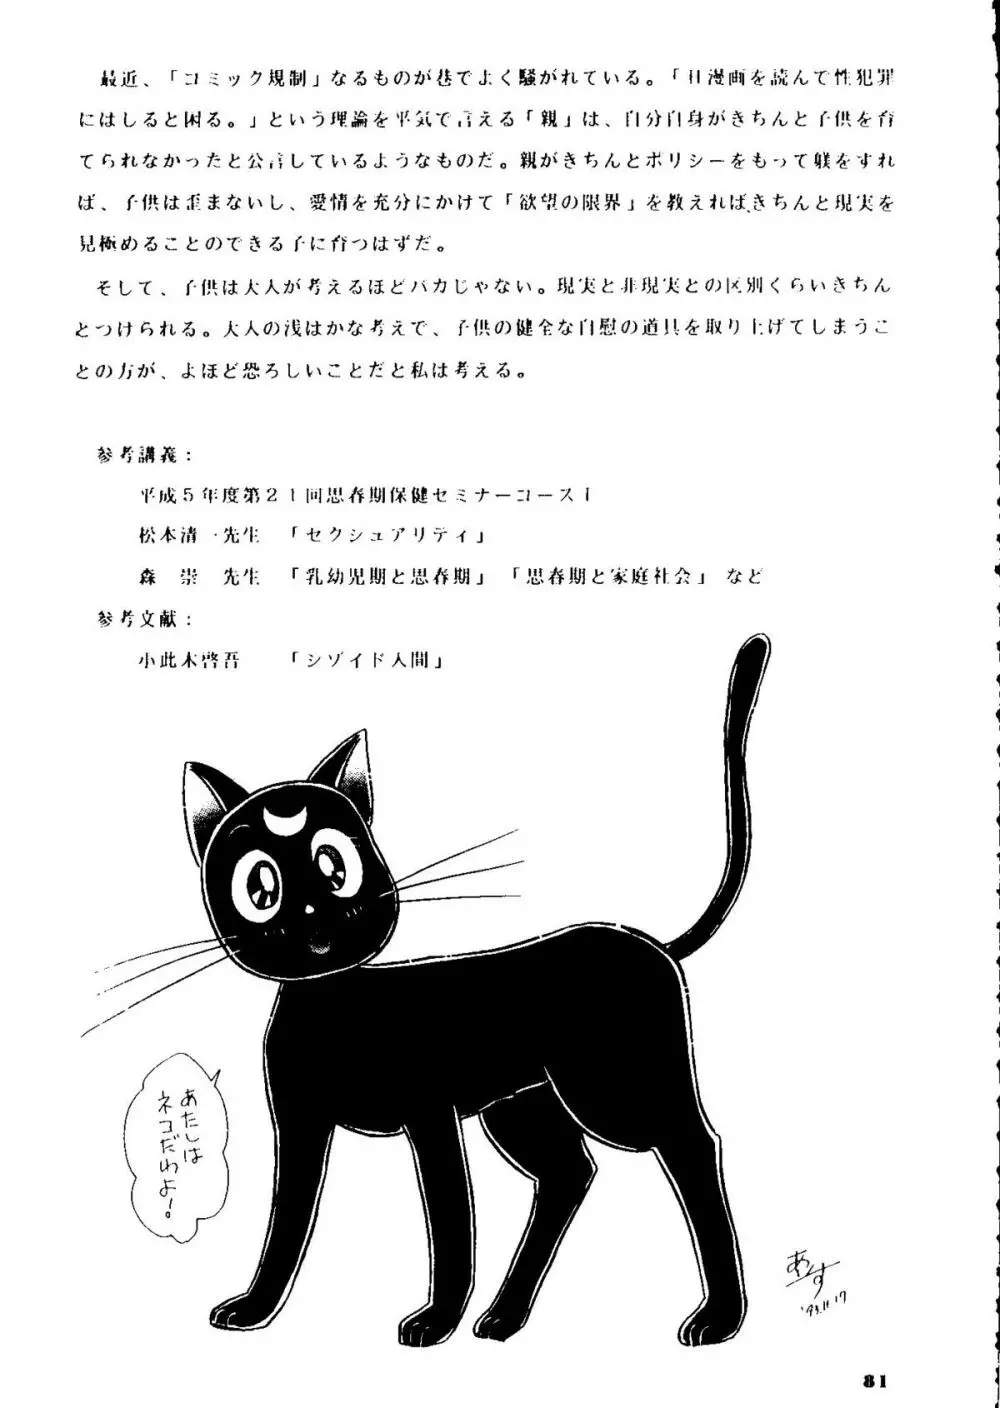 最近、「コミック規制」なるものが巷でよく騒がれている。「H漫画を読んで性犯罪
にはしると困る。」という理論を平気で言える「親」は、自分自身がきちんと子供を育
てられなかったと公言しているようなものだ。親がきちんとポリシーをもって躾をすれ
ば、子供は歪まないし、愛情を充分にかけて「欲望の限界」を教えればきちんと現実を
見極めることのできる子に育つはずだ。
そして、子供は大人が考えるほどバカじゃない。現実と非現実との区別くらいきちん
とつけられる。大人の浅はかな考えで、子供の健全な自慰の道具を取り上げてしまうこ
との方が、よほど恐ろしいことだと私は考える。
参考講義：
平成５年度第２１回思春期保健セミナーコースⅠ
松本清一先生 「セクシュアリティ」
森 崇 先生 「乳幼児期と思春期」「思春期と家庭社会」 など
参考文献：
小此木啓吾 「シゾイド人間」
あたしは
ネコだわよ！
あす
'93.11.17
81